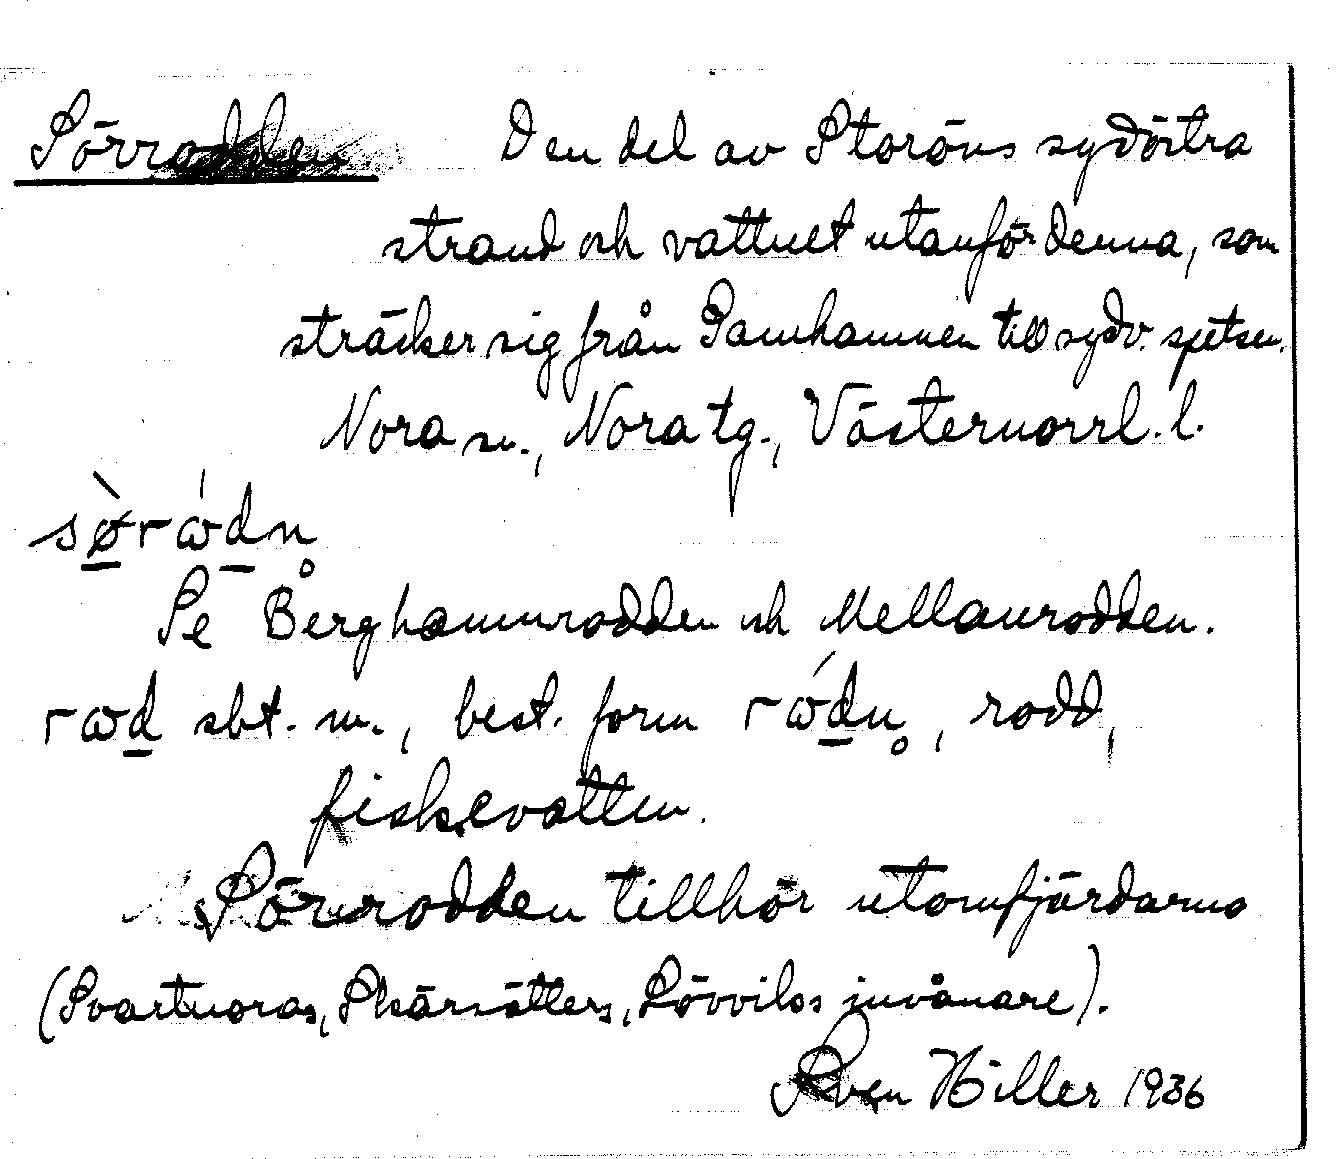 Sörrodden Den del av Storöns sydöstra
strand och vattnet utanför denna, som
sträcker sig från Samhamnen till sydv. spetsen.
Nora sn., Nora tg., Västernorrl. l.
sø̀rɷ́dn̥
Se Berghamnrodden och Mellanrodden.
rɷd sbt. m., best. form rɷ́dn̥, rodd,
fiskevatten.
Sörrodden tillhör utomfjärdarna
(Svartnoras, Skärsätters, Lövviks invånare).
Sven Hiller 1936